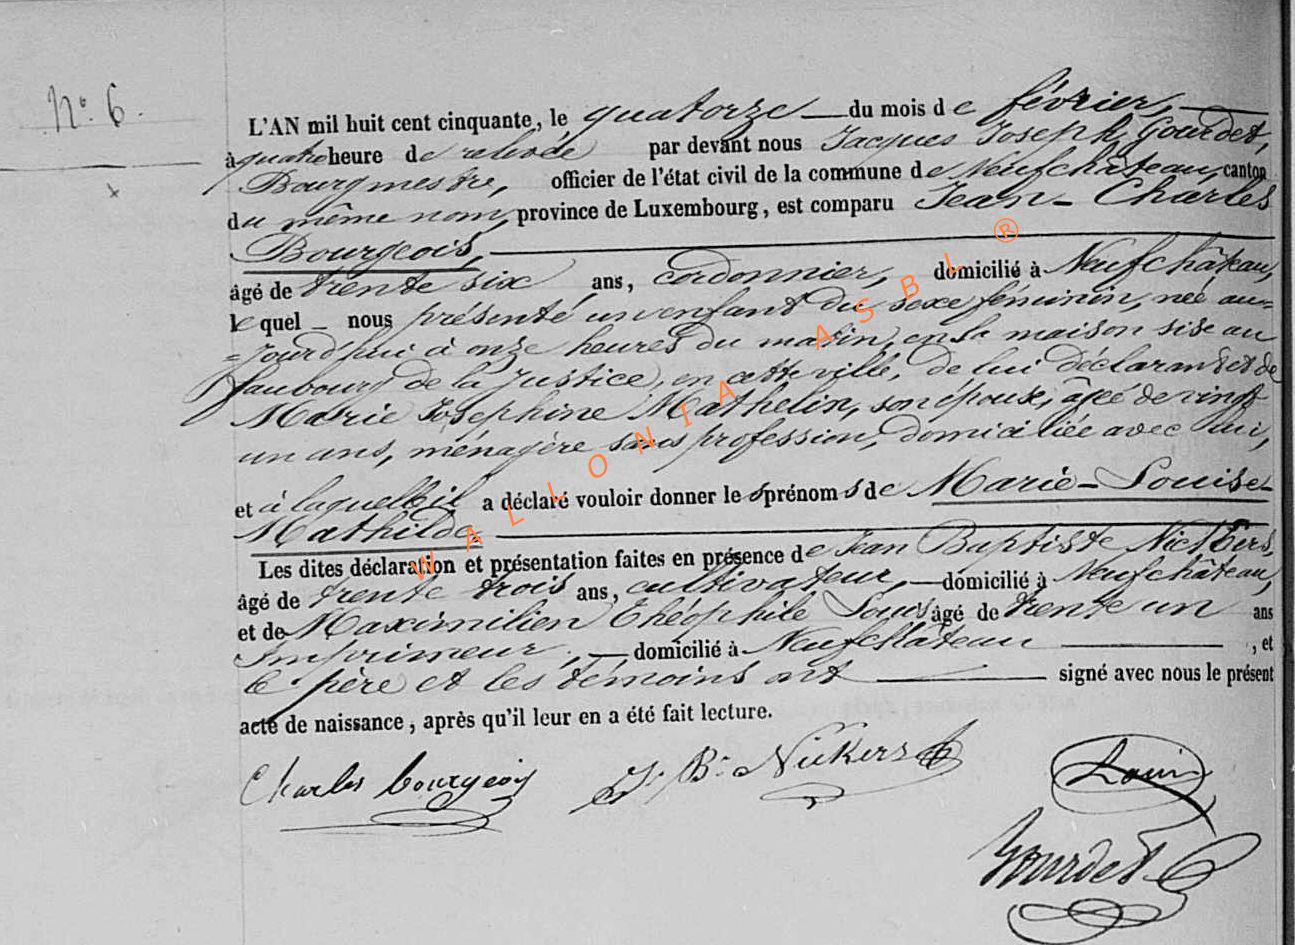 N° 6.
L'AN mil huit cent cinquante, le quatorze du mois de février,
à quatre heure de relevée par devant nous Jacques Joseph Gourdet,
Bourgmestre, officier de l'état civil de la commune de Neufchâteau, canton
du même nom, province de Luxembourg, est comparu Jean-Charles
Bourgeois,
âgé de trente six ans, cordonnier, domicilié à Neufchâteau,
lequel nous présenté un enfant du sexe féminin, née au=
=jourd'hui à onze heures du matin, en sa maison sise au
faubourg de la Justice, en cette ville, de lui déclarant et de
Marie Josephine Mathelin, son épouse, âgée de vingt
un ans, ménagère sans profession, domiciliée avec lui,
et à laquelle il a déclaré vouloir donner les prénoms de Marie-Louise-
Mathilde.
Les dites déclaration et présentation faites en présence de Jean Baptiste
âgé de trente trois ans, cultivateur, domicilié à Neufchâteau,
et de Maximilien Théophile Louis âgé de trente un ans
Imprimeur, domicilié à Neufchateau, et
le père et les témoins ont signé avec nous le présent
acte de naissance, après qu'il leur en a été fait lecture.
Charles bourgeois J. B. Nickers Louis
Gourdet
WALLONIA ASBL ®